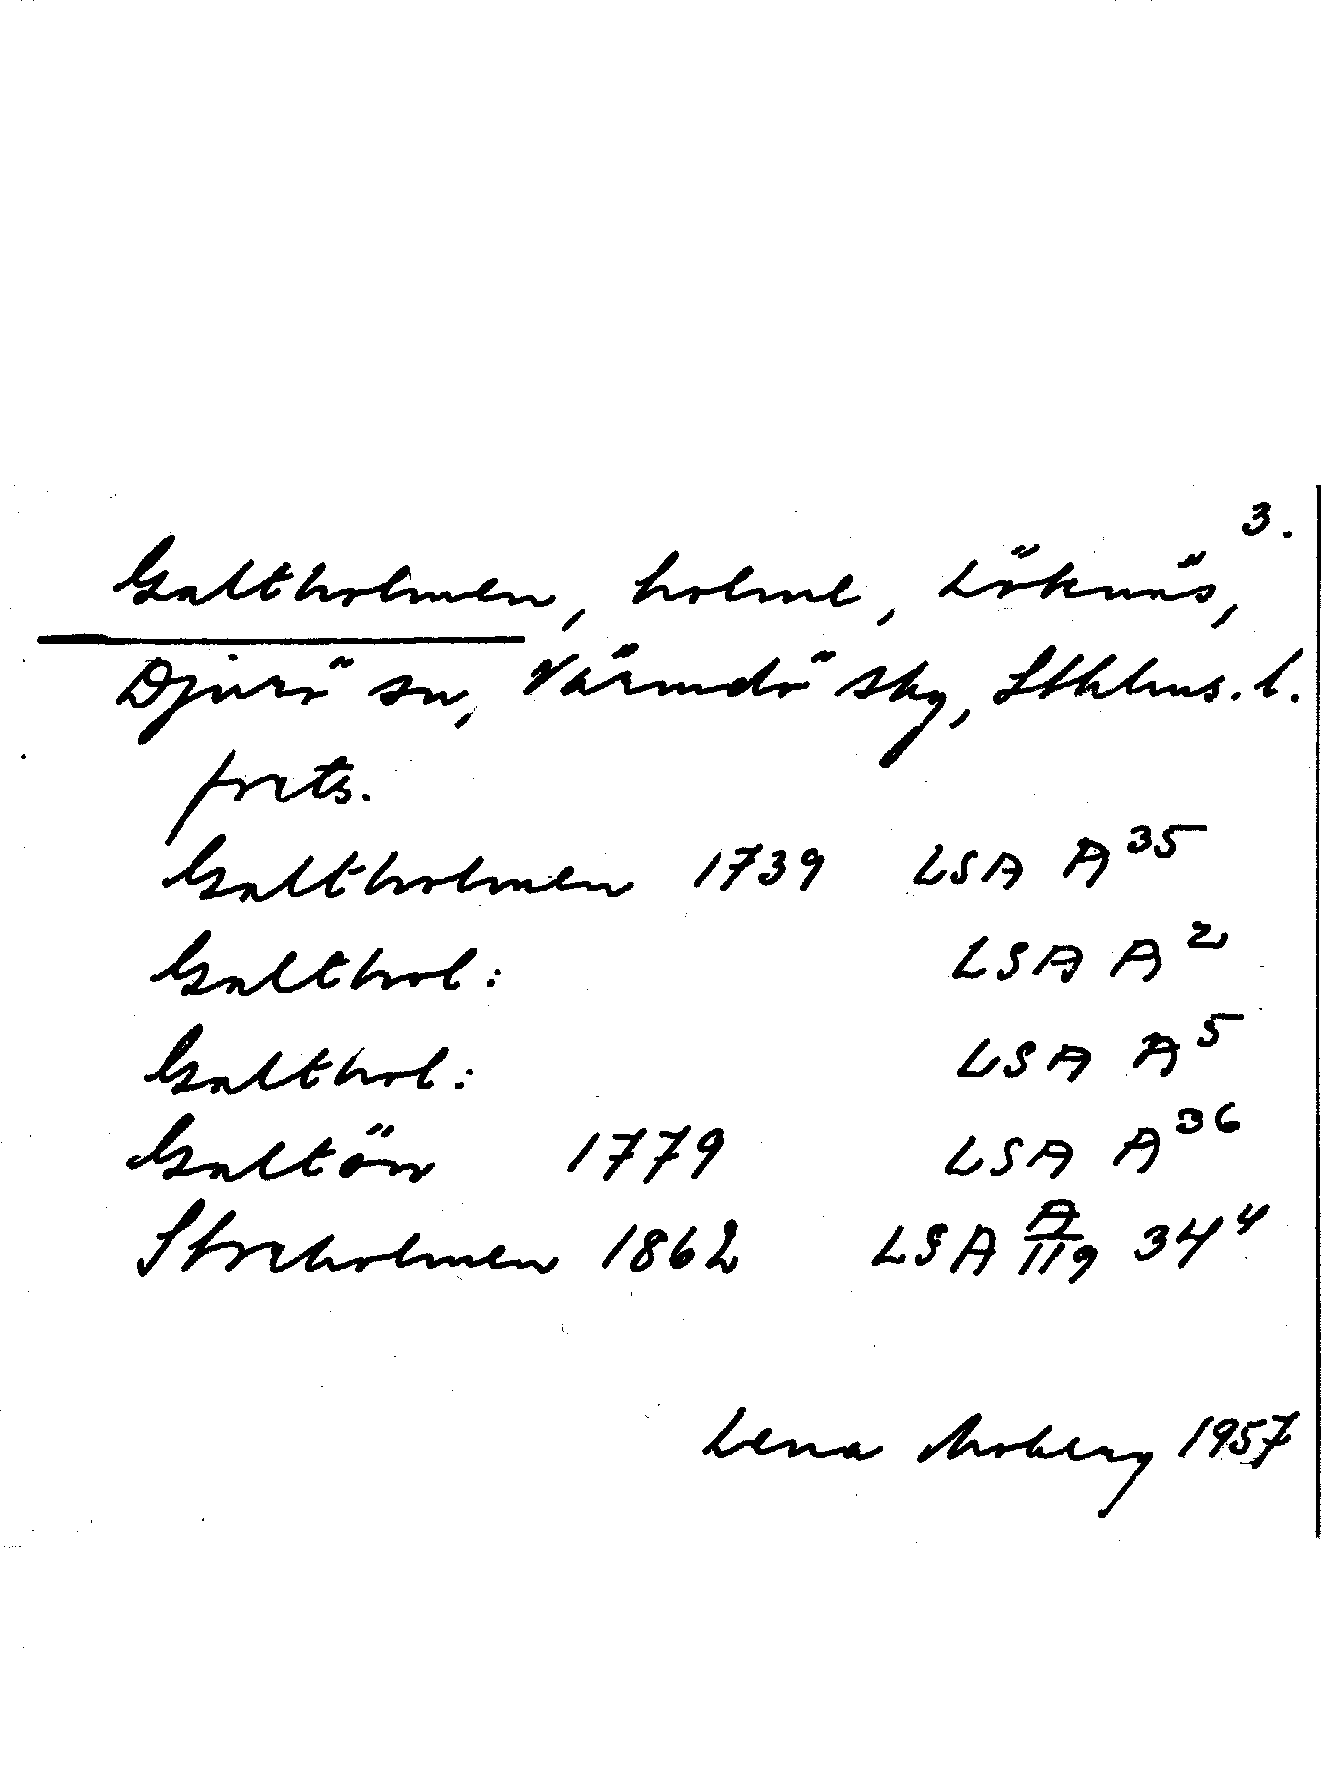 3.
Galtholmen, holme, Löknäs,
Djurö sn, Värmdö skg, Sthlms. l.
forts.
Galtholmen 1739 LSA A³⁵
Galthol: LSA A²
Galthol: LSA A⁵
Galtön 1779 LSA A³⁶
Storholmen 1862 LSA A/119 34⁴
Lena Moberg 1957